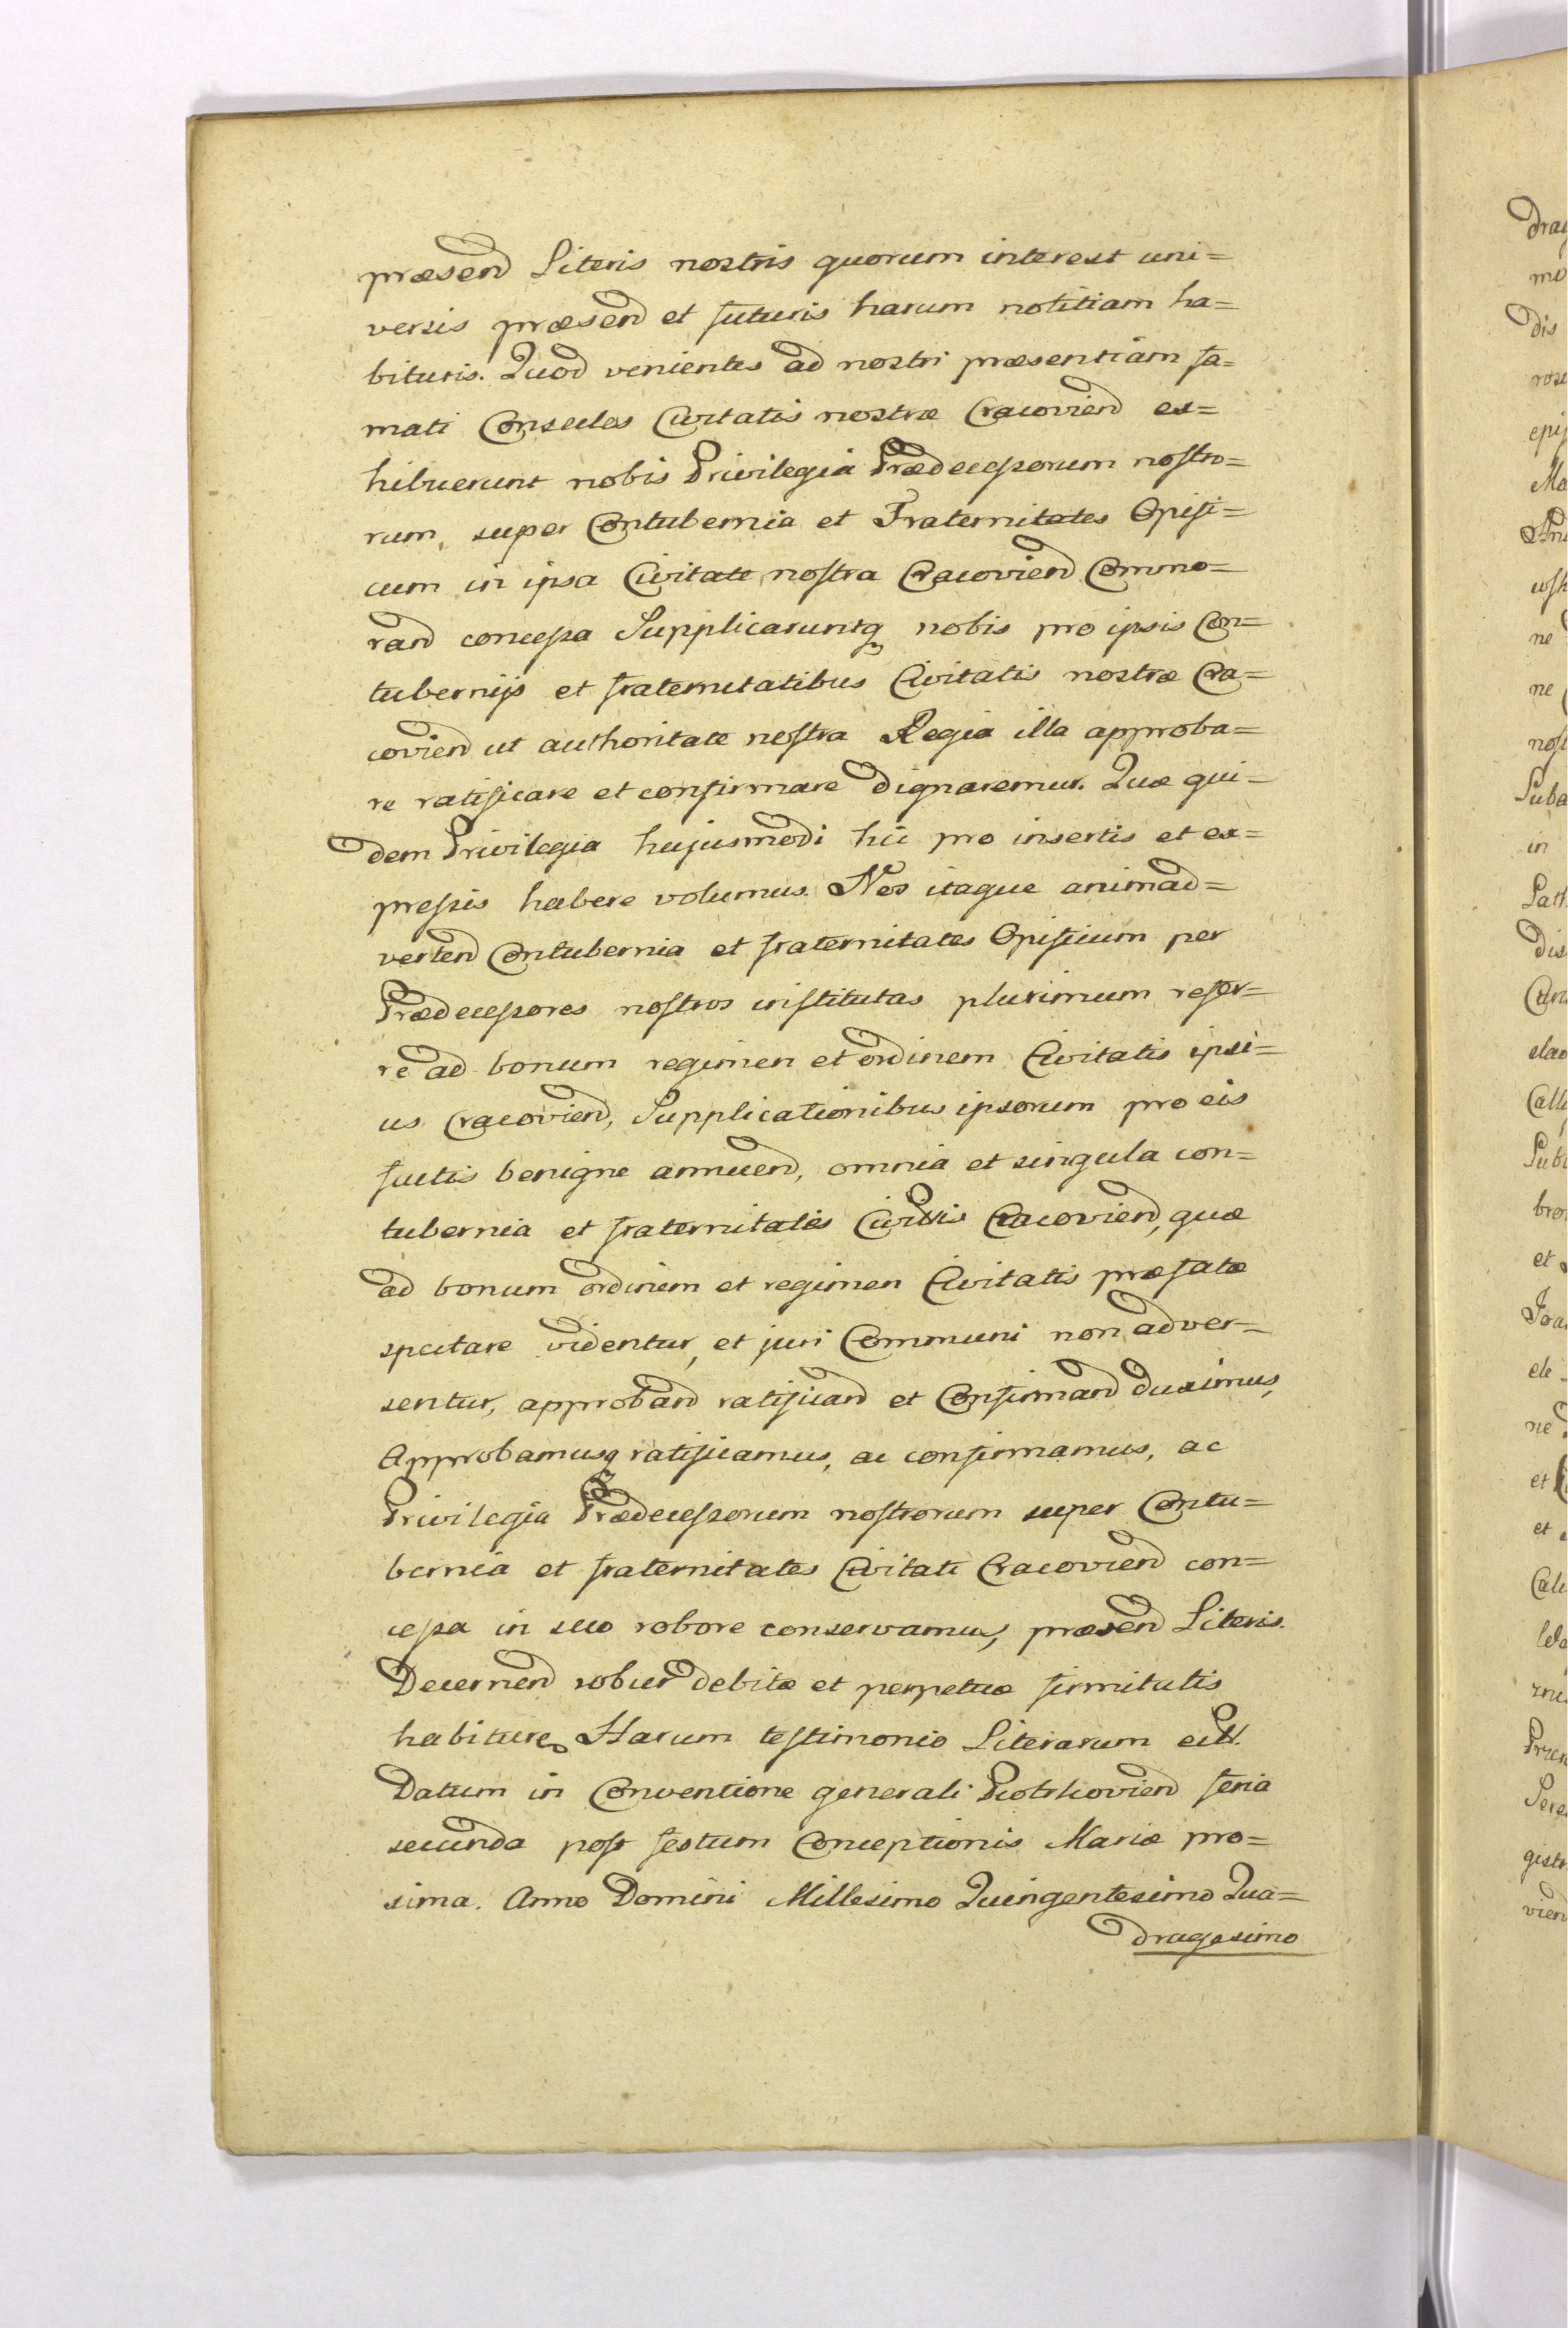 præsend Literis nostris quorum interest uni=
versis præsend et futuris harum notitiam ha=
bituris. Quod venientes ad nostri præsentiam fa=
mati Consules Civitatis nostræ Cracoviend ex=
hibuerunt nobis Privilegia Prædeceſsorum noſtro=
rum, super Contubernia et Fraternitates Opifi=
cum in ipsa Civitate noſtra Cracoviend Commo=
rand conceſsa Supplicaruntq nobis pro ipsis Con=
tubernijs et fraternitatibus Civitatis nostræ Cra=
coviend ut authoritate noſtra Regia illa approba=
re ratificare et confirmare dignaremur. Quæ qui=
dem Privilegia hujusmodi hic pro insertis et ex=
preſsis habere volumus. Nos itaque animad=
vertend Contubernia et fraternitates Opificum per
Prædeceſsores noſtros inſtitutas plurimum refer=
re ad bonum regimen et ordinem Civitatis ipsi=
us Cracoviend, Supplicationibus ipsorum pro eis
factis benigne annuend, omnia et singula con=
tubernia et fraternitates Civittis Cracoviend, quæ
ad bonum ordinem et regimen Civitatis præfatæ
spectare videntur, et juri Communi non adver=
sentur, approband ratificand et Confirmand duximus,
Approbamusq ratificamus, ac confirmamus, ac
Privilegia Prædeceſsorum noſtrorum super Contu=
bernia et fraternitates Civitati Cracoviend con=
ceſsa in suo robore conservamus, præsend Literis.
Decernend robur debitæ et perpetuæ firmitatis
habitura. Harum teſtimonio Literarum
Datum in Conventione generali Piotrkoviend feria
secunda poſt feſtum Conceptionis Mariæ pro=
xima. Anno Domini Millesimo Quingentesimo Qua=
dragesimo